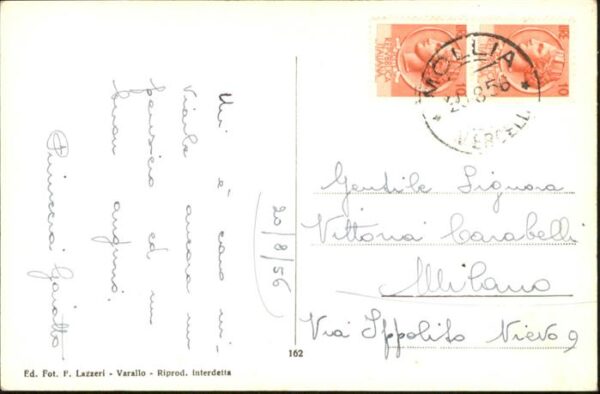 Mi è caro in-
viarle ancora un
pensiero ed un
buon augurio.
20/8/56
REPUBBLICA
ITALIANA
10
10
MOLLIA
20.8.56
VERCELLI
Gentile Signora
Vittoria Carabelli
Milano
Via Ippolito Nievo 9
162
Ed. Fot. P. Lazzeri - Varallo - Riprod. interdetta